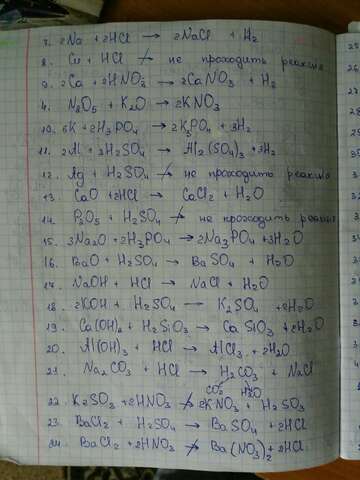 7. 2Na + 2HCl → 2NaCl + H₂
8. Cu + HCl ↛ не проходить реакція
9. 2Ca + 2HNO₃ → 2CaNO₃ + H₂
4. N₂O₅ + K₂O → 2KNO₃
10. 6K + 2H₃PO₄ → 2K₃PO₄ + 3H₂
11. 2Al + 3H₂SO₄ → Al₂(SO₄)₃ + 3H₂
12. Ag + H₂SO₄ ↛ не проходить реакція
13. CaO + 2HCl → CaCl₂ + H₂O
14. P₂O₅ + H₂SO₄ ↛ не проходить реакція
15. 3Na₂O + 2H₃PO₄ → 2Na₃PO₄ + 3H₂O
16. BaO + H₂SO₄ → BaSO₄ + H₂O
17. NaOH + HCl → NaCl + H₂O
18. 2KOH + H₂SO₄ → K₂SO₄ + 2H₂O
19. Ca(OH)₂ + H₂SiO₃ → CaSiO₃ + 2H₂O
20. Al(OH)₃ + HCl → AlCl₃ + 2H₂O
21. Na₂CO₃ + HCl → H₂CO₃ + NaCl
CO₂ H₂O
22. K₂SO₃ + 2HNO₃ ↛ 2KNO₃ + H₂SO₃
23. BaCl₂ + H₂SO₄ → BaSO₄ + 2HCl
24. BaCl₂ + 2HNO₃ ↛ Ba(NO₃)₂ + 2HCl